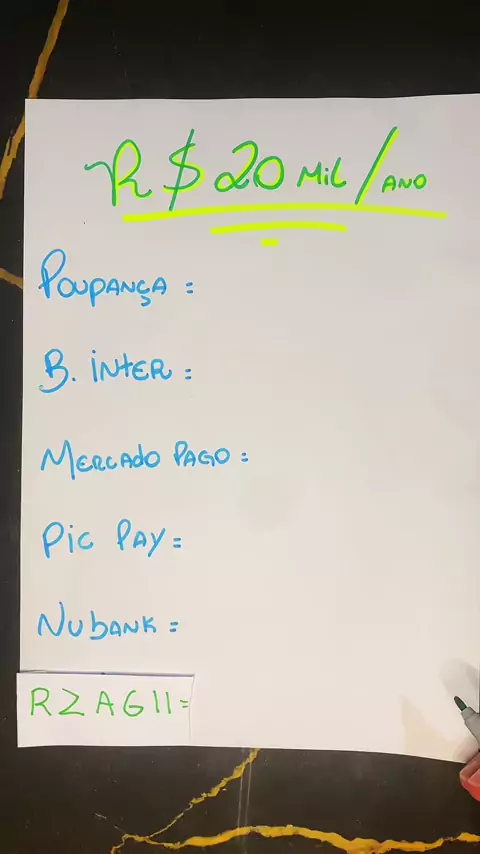 R$ 20 Mil/ANO
POUPANÇA =
B. iNTER =
MERCADO PAGO =
Pic PAY =
NUBANK =
RZAG11=